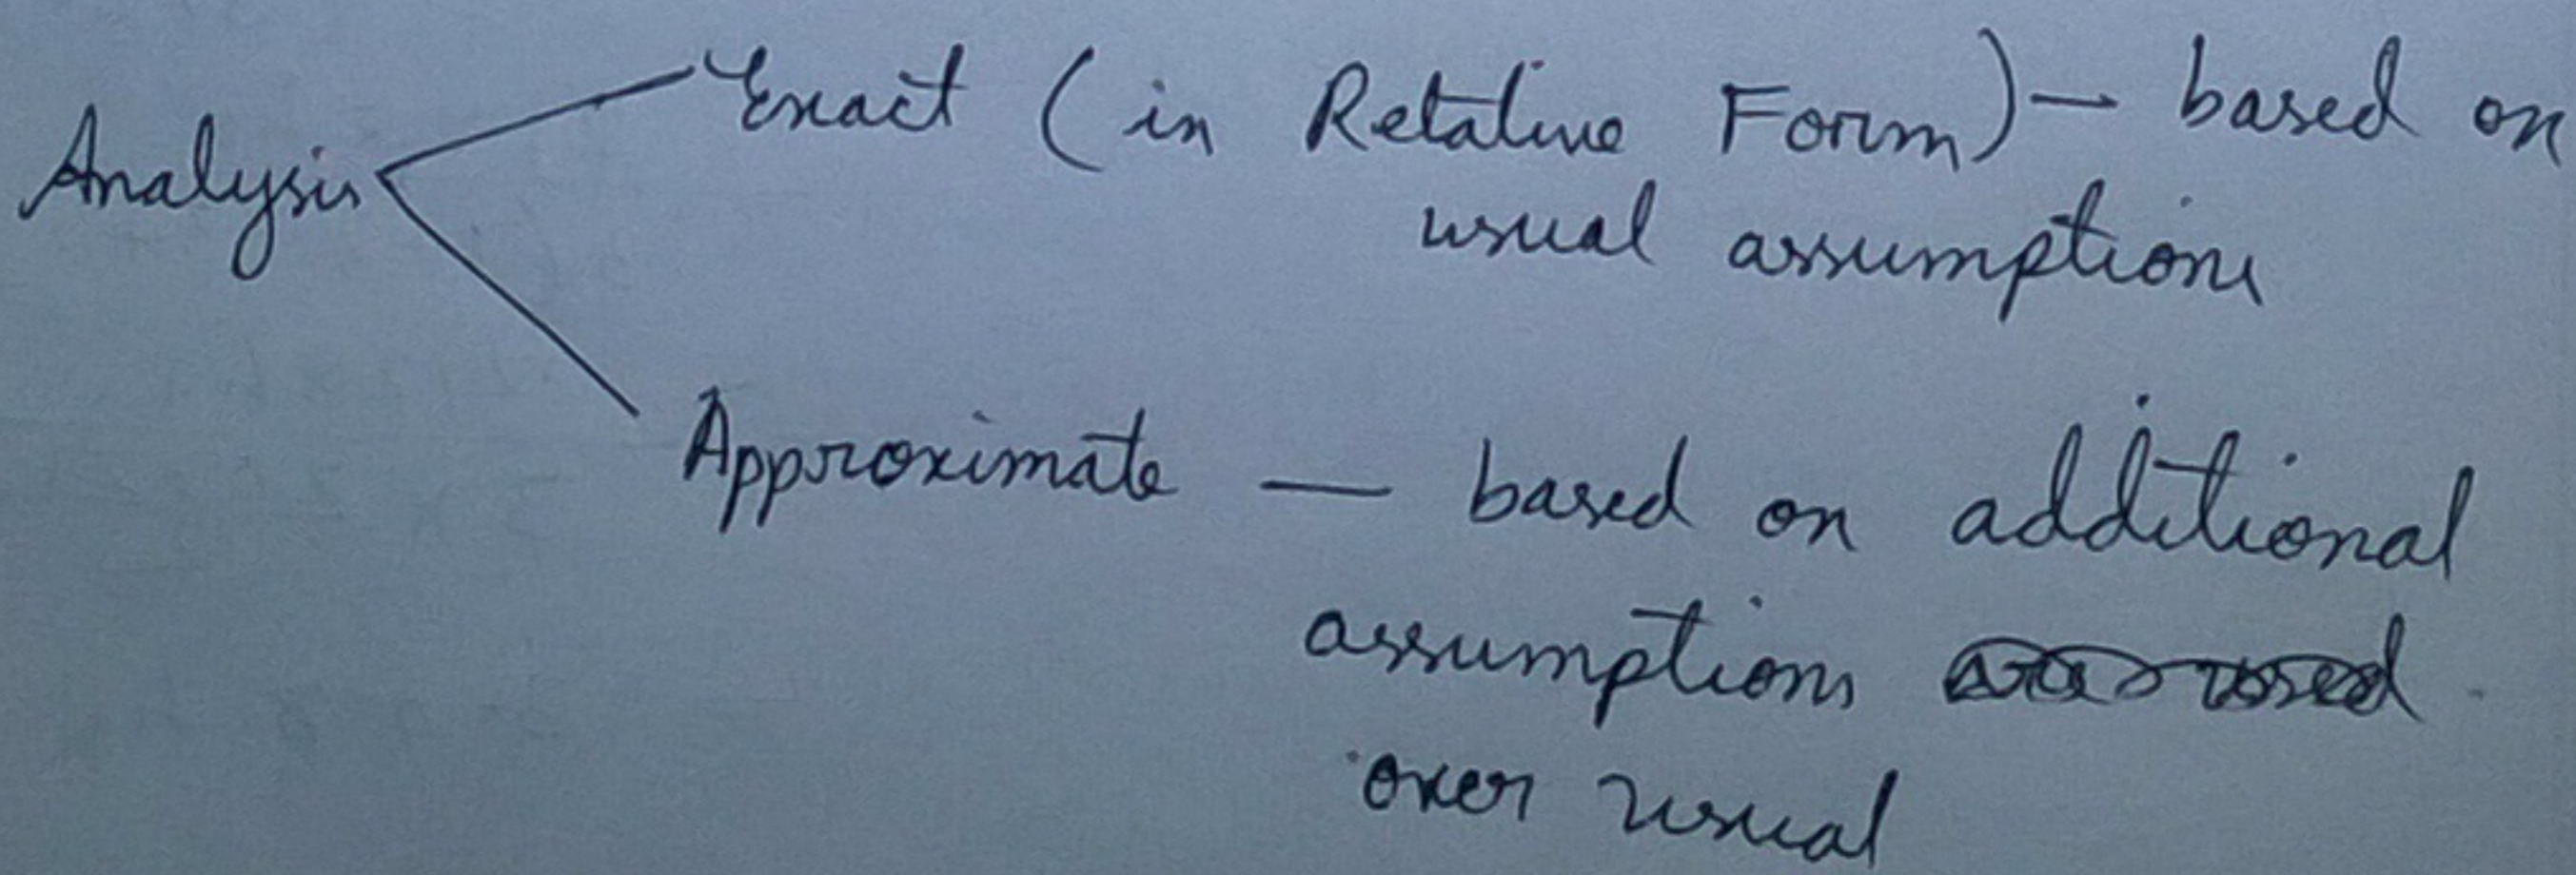 Exact (in Relative Form) — based on
Analysis
usual assumptions
Approximate — based on additional
assumptions
over usual